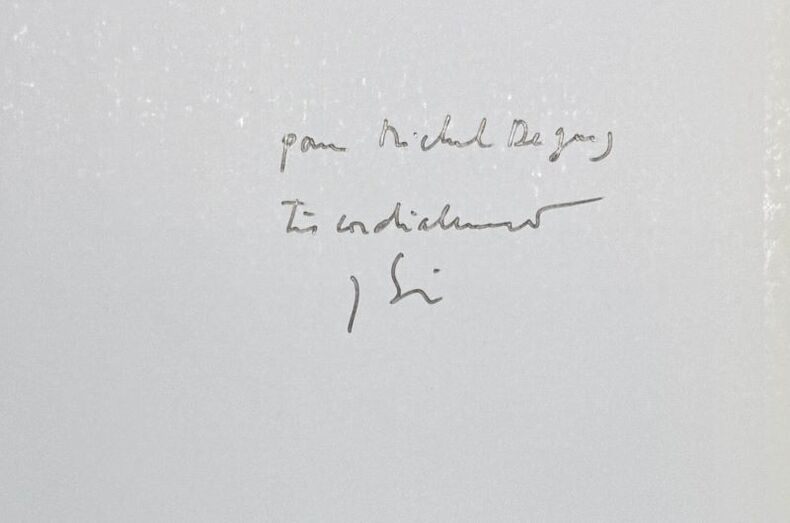 pour Michel Deguy
Très cordialement
J